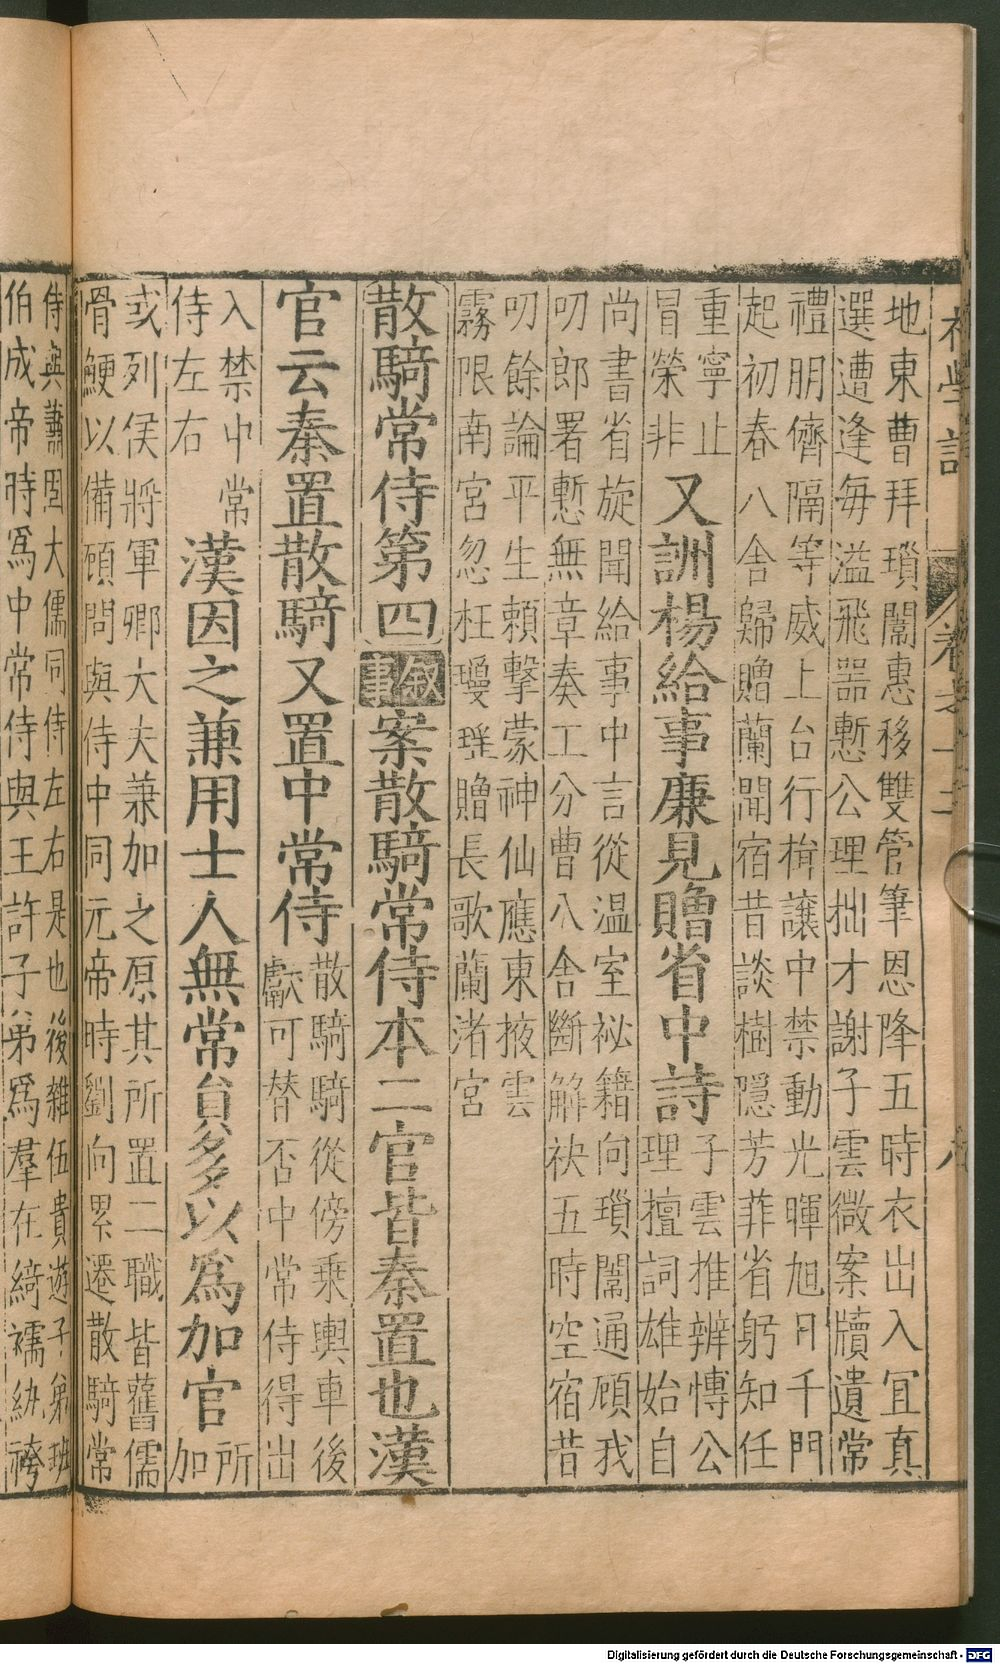 初學記 卷之十二 八
地東曹拜瑣闈惠移雙管筆恩降五時衣出入宜真
選遭逢每溢飛器慙公理拙才謝子雲微案牘遺常
禮朋儕隔等威上台行揖讓中禁動光暉旭日千門
起初春八舍歸贈蘭聞宿昔談樹隱芳菲省躬知任
重寧止
冒榮非
又詶楊給事廉見贈省中詩
子雲推辨慱公
理擅詞雄始自
尚書省旋聞給事中言從温室祕籍向瑣闈通顧我
叨郎署慙無章奏工分曹八舍斷解袂五時空宿昔
叨餘論平生賴擊蒙神仙應東掖雲
霧限南宮忽枉瓊瑶贈長歌蘭渚宮
散騎常侍第四
叙事
案散騎常侍本二官皆秦置也漢
官云秦置散騎又置中常侍
散騎騎從傍乗輿車後
獻可替否中常侍得出
入禁中常
侍左右
漢因之兼用士人無常貟多以爲加官
所
加
或列侯將軍卿大夫兼加之原其所置二職皆舊儒
骨鯁以備顧問與侍中同元帝時劉向累遷散騎常
侍與蕭固大儒同侍左右是也後雜伍貴遊子弟班
伯成帝時爲中常侍與王許子弟爲羣在綺襦紈袴
Digitalisierung gefördert durch die Deutsche Forschungsgemeinschaft - DFG